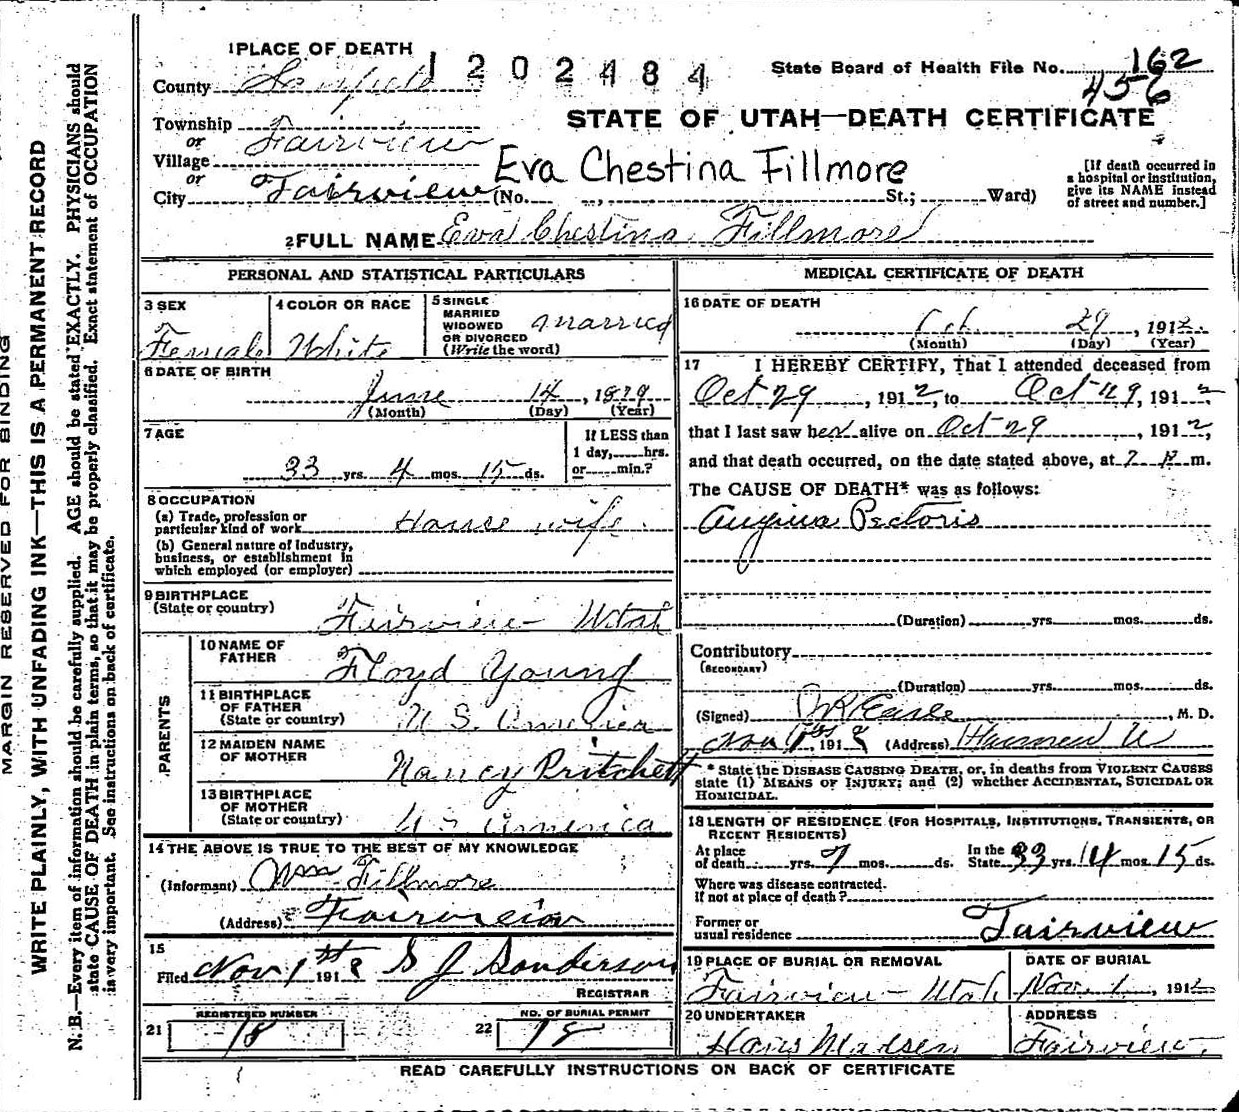 MARGIN RESERVED FOR BINDING
WRITE PLAINLY, WITH UNFADING INK—THIS IS A PERMANENT RECORD
N. B.—Every item of information should be carefully supplied. AGE should be stated EXACTLY. PHYSICIANS should
state CAUSE OF DEATH in plain terms, so that it may be properly classified. Exact statement of OCCUPATION
is very important. See instructions on back of certificate.
1 PLACE OF DEATH
1202484
State Board of Health File No. 162
456
County
STATE OF UTAH—DEATH CERTIFICATE
Township Fairview
or
Village
or
Eva Chestina Fillmore
City Fairview (No. St.; Ward)
[If death occurred in
a hospital or institution,
give its NAME instead
of street and number.]
2 FULL NAME Eva Chestina Fillmore
PERSONAL AND STATISTICAL PARTICULARS
3 SEX
Female
4 COLOR OR RACE
White
5 SINGLE
MARRIED
WIDOWED
OR DIVORCED
(Write the word)
Married
6 DATE OF BIRTH
June 14, 1879
(Month) (Day) (Year)
7 AGE
33 yrs. 4 mos. 15 ds.
If LESS than
1 day, hrs.
or min.?
8 OCCUPATION
(a) Trade, profession or
particular kind of work House wife
(b) General nature of Industry,
business, or establishment in
which employed (or employer)
9 BIRTHPLACE
(State or country)
Fairview Utah
PARENTS
10 NAME OF
FATHER
Floyd Young
11 BIRTHPLACE
OF FATHER
(State or country)
U S. America
12 MAIDEN NAME
OF MOTHER
Nancy Pritchett
13 BIRTHPLACE
OF MOTHER
(State or country)
U S America
14 THE ABOVE IS TRUE TO THE BEST OF MY KNOWLEDGE
(Informant) Fillmore
(Address) Fairview
15
Filed Nov 1st 1912 S J Sanderson
REGISTRAR
REGISTERED NUMBER
21 18
NO. OF BURIAL PERMIT
22 18
MEDICAL CERTIFICATE OF DEATH
16 DATE OF DEATH
Oct 29, 1912.
(Month) (Day) (Year)
17 I HEREBY CERTIFY, That I attended deceased from
Oct 29, 1912, to Oct 29, 1912,
that I last saw her alive on Oct 29, 1912,
and that death occurred, on the date stated above, at 7 P. m.
The CAUSE OF DEATH* was as follows:
Angina Pectoris
(Duration) yrs. mos. ds.
Contributory
(SECONDARY)
(Duration) yrs. mos. ds.
(Signed) Earle, M. D.
Nov 1st, 1912 (Address) Fairview U
* State the DISEASE CAUSING DEATH, or, in deaths from VIOLENT CAUSES
state (1) MEANS OF INJURY; and (2) whether ACCIDENTAL, SUICIDAL OR
HOMICIDAL.
18 LENGTH OF RESIDENCE (FOR HOSPITALS, INSTITUTIONS, TRANSIENTS, OR
RECENT RESIDENTS)
At place
of death yrs. 7 mos. ds.
In the
State 33 yrs. 4 mos. 15 ds.
Where was disease contracted.
If not at place of death?
Former or
usual residence Fairview
19 PLACE OF BURIAL OR REMOVAL
Fairview Utah
DATE OF BURIAL
Nov. 1, 1912
20 UNDERTAKER
Hans Madsen
ADDRESS
Fairview.
READ CAREFULLY INSTRUCTIONS ON BACK OF CERTIFICATE